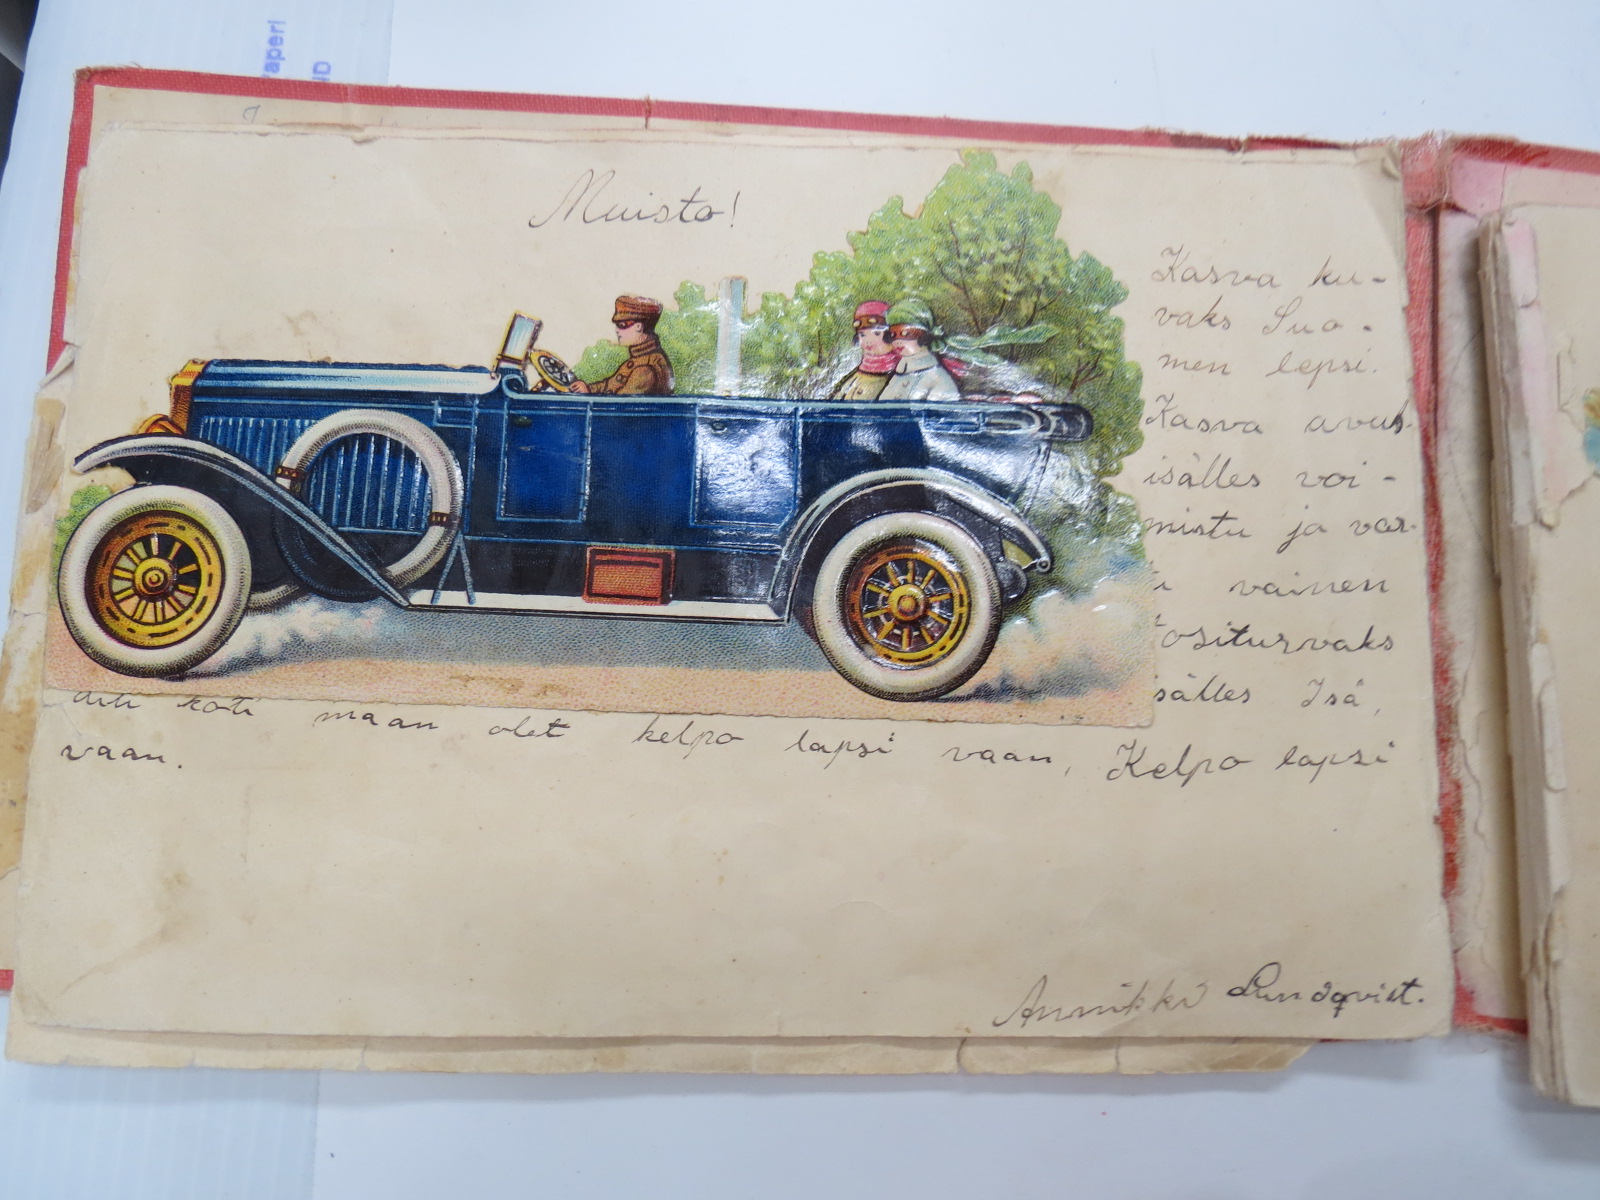 Muisto!
Kasva ku-
vaks Suo-
men lapsi.
Kasva avuk-
isälles voi-
mistu ja var-
vainen
ositurvaks
isälles Isä,
äiti koti maan olet kelpo lapsi vaan, Kelpo lapsi
vaan.
Annikki Lundqvist.
aperi
ND